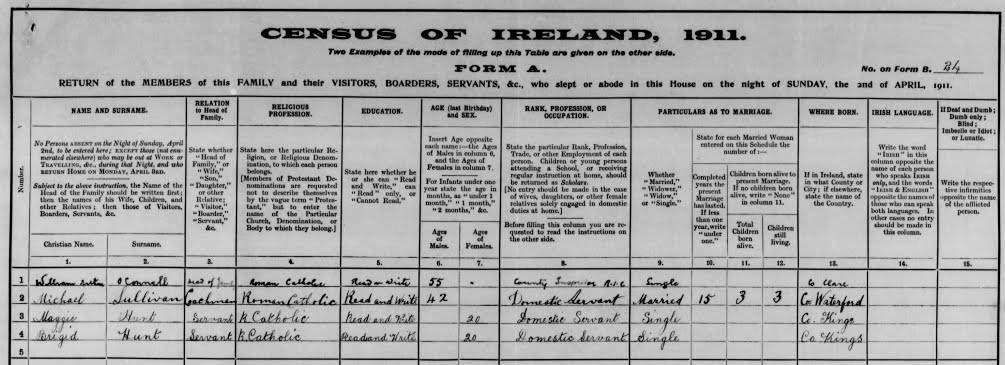 CENSUS OF IRELAND, 1911.
Two Examples of the mode of filling up this Table are given on the other side.
FORM A.
No. on Form B. 24
RETURN of the MEMBERS of this FAMILY and their VISITORS, BOARDERS, SERVANTS, &c., who slept or abode in this House on the night of SUNDAY, the 2nd of APRIL, 1911.
Number.
NAME AND SURNAME.
No Persons ABSENT on the Night of Sunday, April
2nd, to be entered here; EXCEPT those (not enu-
merated elsewhere) who may be out at WORK or
TRAVELLING, &c., during that Night, and who
RETURN HOME ON MONDAY, APRIL 3RD.
Subject to the above instruction, the Name of the
Head of the Family should be written first;
then the names of his Wife, Children, and
other Relatives; then those of Visitors,
Boarders, Servants, &c.
Christian Name.
Surname.
RELATION
to Head of
Family.
State whether
"Head of
Family," or
"Wife,"
"Son,"
"Daughter,"
or other
Relative;
"Visitor,"
"Boarder,"
"Servant,"
&c.
RELIGIOUS
PROFESSION.
State here the particular Re-
ligion, or Religious Denom-
ination, to which each person
belongs.
[Members of Protestant De-
nominations are requested
not to describe themselves
by the vague term "Protes-
tant," but to enter the
name of the Particular
Church, Denomination, or
Body to which they belong.]
EDUCATION.
State here whether he
or she can "Read
and Write," can
"Read" only, or
"Cannot Read."
AGE (last Birthday)
and SEX.
Insert Age opposite
each name:—the Ages
of Males in column 6,
and the Ages of
Females in column 7.
For Infants under one
year state the age in
months, as "under 1
month," "1 month,"
"2 months," &c.
Ages
of
Males.
Ages
of
Females.
RANK, PROFESSION, OR
OCCUPATION.
State the particular Rank, Profession,
Trade, or other Employment of each
person. Children or young persons
attending a School, or receiving
regular instruction at home, should
be returned as Scholars.
[No entry should be made in the case
of wives, daughters, or other female
relatives solely engaged in domestic
duties at home.]
Before filling this column you are re-
quested to read the instructions on
the other side.
PARTICULARS AS TO MARRIAGE.
Whether
"Married,"
"Widower,"
"Widow,"
or "Single."
State for each Married Woman
entered on this Schedule the
number of:—
Completed
years the
present
Marriage
has lasted.
If less
than one
year, write
"under
one."
Children born alive to
present Marriage.
If no children born
alive, write "None"
in column 11.
Total
Children
born
alive.
Children
still
living.
WHERE BORN.
If in Ireland, state
in what County or
City; if elsewhere,
state the name of
the Country.
IRISH LANGUAGE.
Write the word
"IRISH" in this
column opposite the
name of each person
who speaks IRISH
only, and the words
"IRISH & ENGLISH"
opposite the names of
those who can speak
both languages. In
other cases no entry
should be made in
this column.
If Deaf and Dumb;
Dumb only;
Blind;
Imbecile or Idiot;
or Lunatic.
Write the respec-
tive infirmities
opposite the name
of the afflicted
person.
1. 2. 3. 4. 5. 6. 7. 8. 9. 10. 11. 12. 13. 14. 15.
1 William O'Connell Head of Roman Catholic Read & Write 55 - County Inspector R.I.C Single Co Clare
2 Michael Sullivan Coachman Roman Catholic Read and Write 42 Domestic Servant Married 15 3 3 Co Waterford
3 Maggie Hunt Servant R. Catholic Read and Write 20 Domestic Servant Single Co. Kings
4 Brigid Hunt Servant R. Catholic Read and Write 20 Domestic Servant Single Co Kings
5